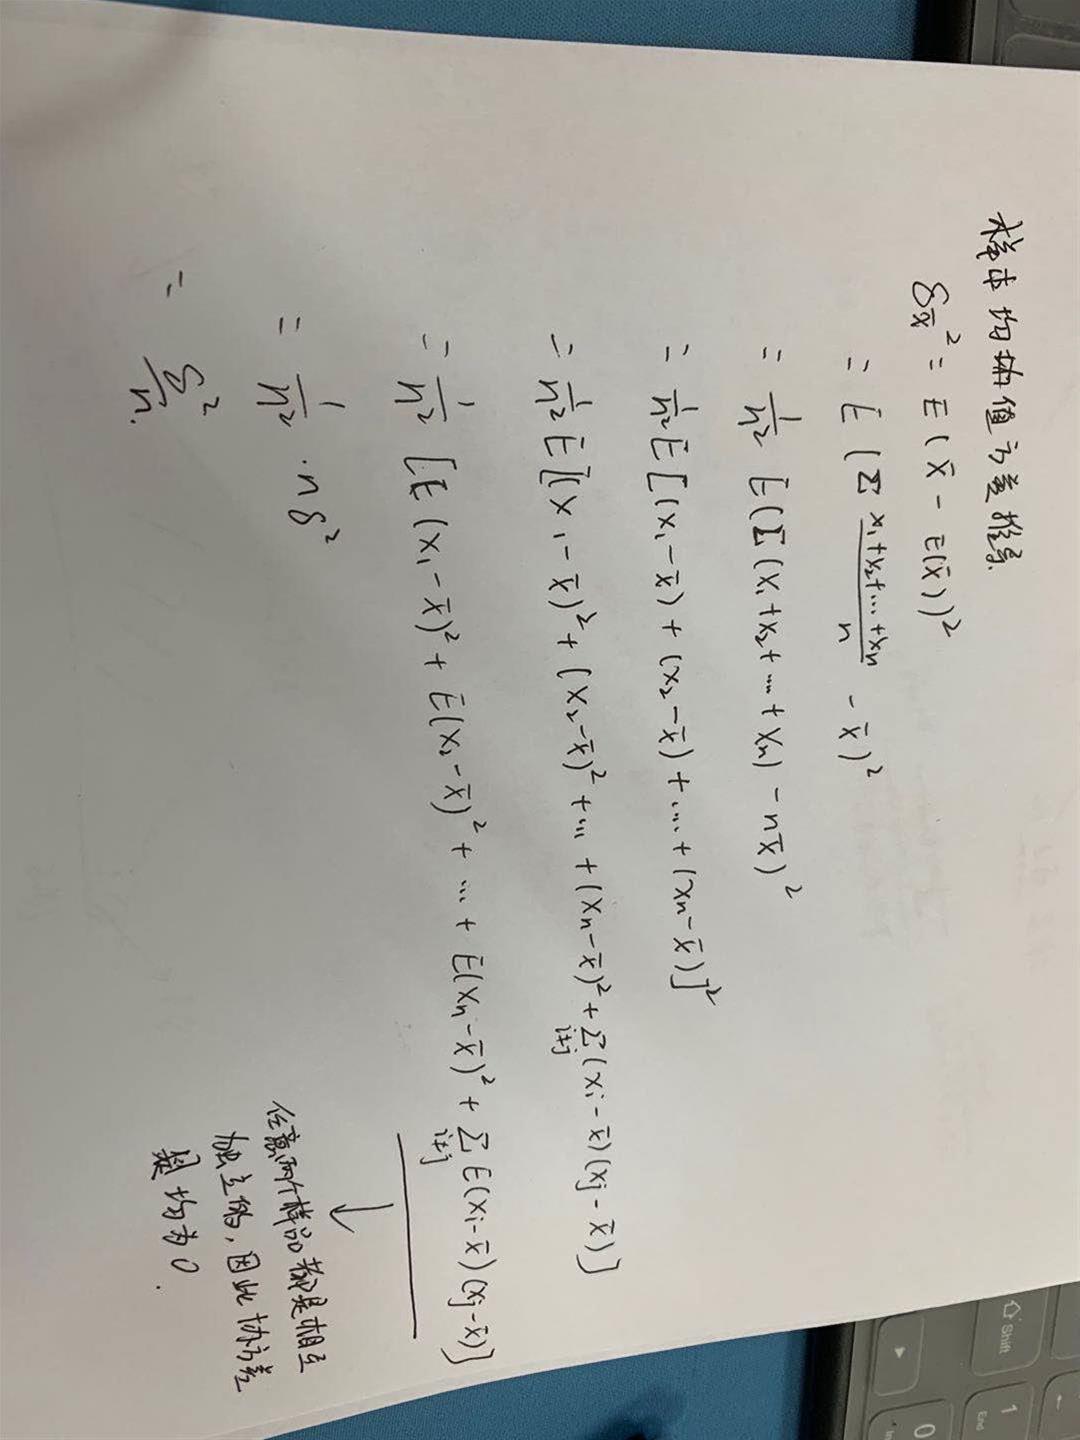 样本均值方差推导
δx̄² = E(x̄ - E(x̄))²
= E(Σ (x₁+x₂+...+xₙ)/n - x̄)²
= 1/n² E(Σ(x₁+x₂+...+xₙ) - nx̄)²
= 1/n² E[(x₁-x̄) + (x₂-x̄) + ... + (xₙ-x̄)]²
= 1/n² E[(x₁-x̄)² + (x₂-x̄)² + ... + (xₙ-x̄)² + Σ i≠j (xᵢ-x̄)(xⱼ-x̄)]
= 1/n² [E(x₁-x̄)² + E(x₂-x̄)² + ... + E(xₙ-x̄)² + Σ i≠j E(xᵢ-x̄)(xⱼ-x̄)]
= 1/n² · nδ²
= δ²/n
任意两个样品都是相互
独立的，因此协方差
均为0.
Shift
1
End
0